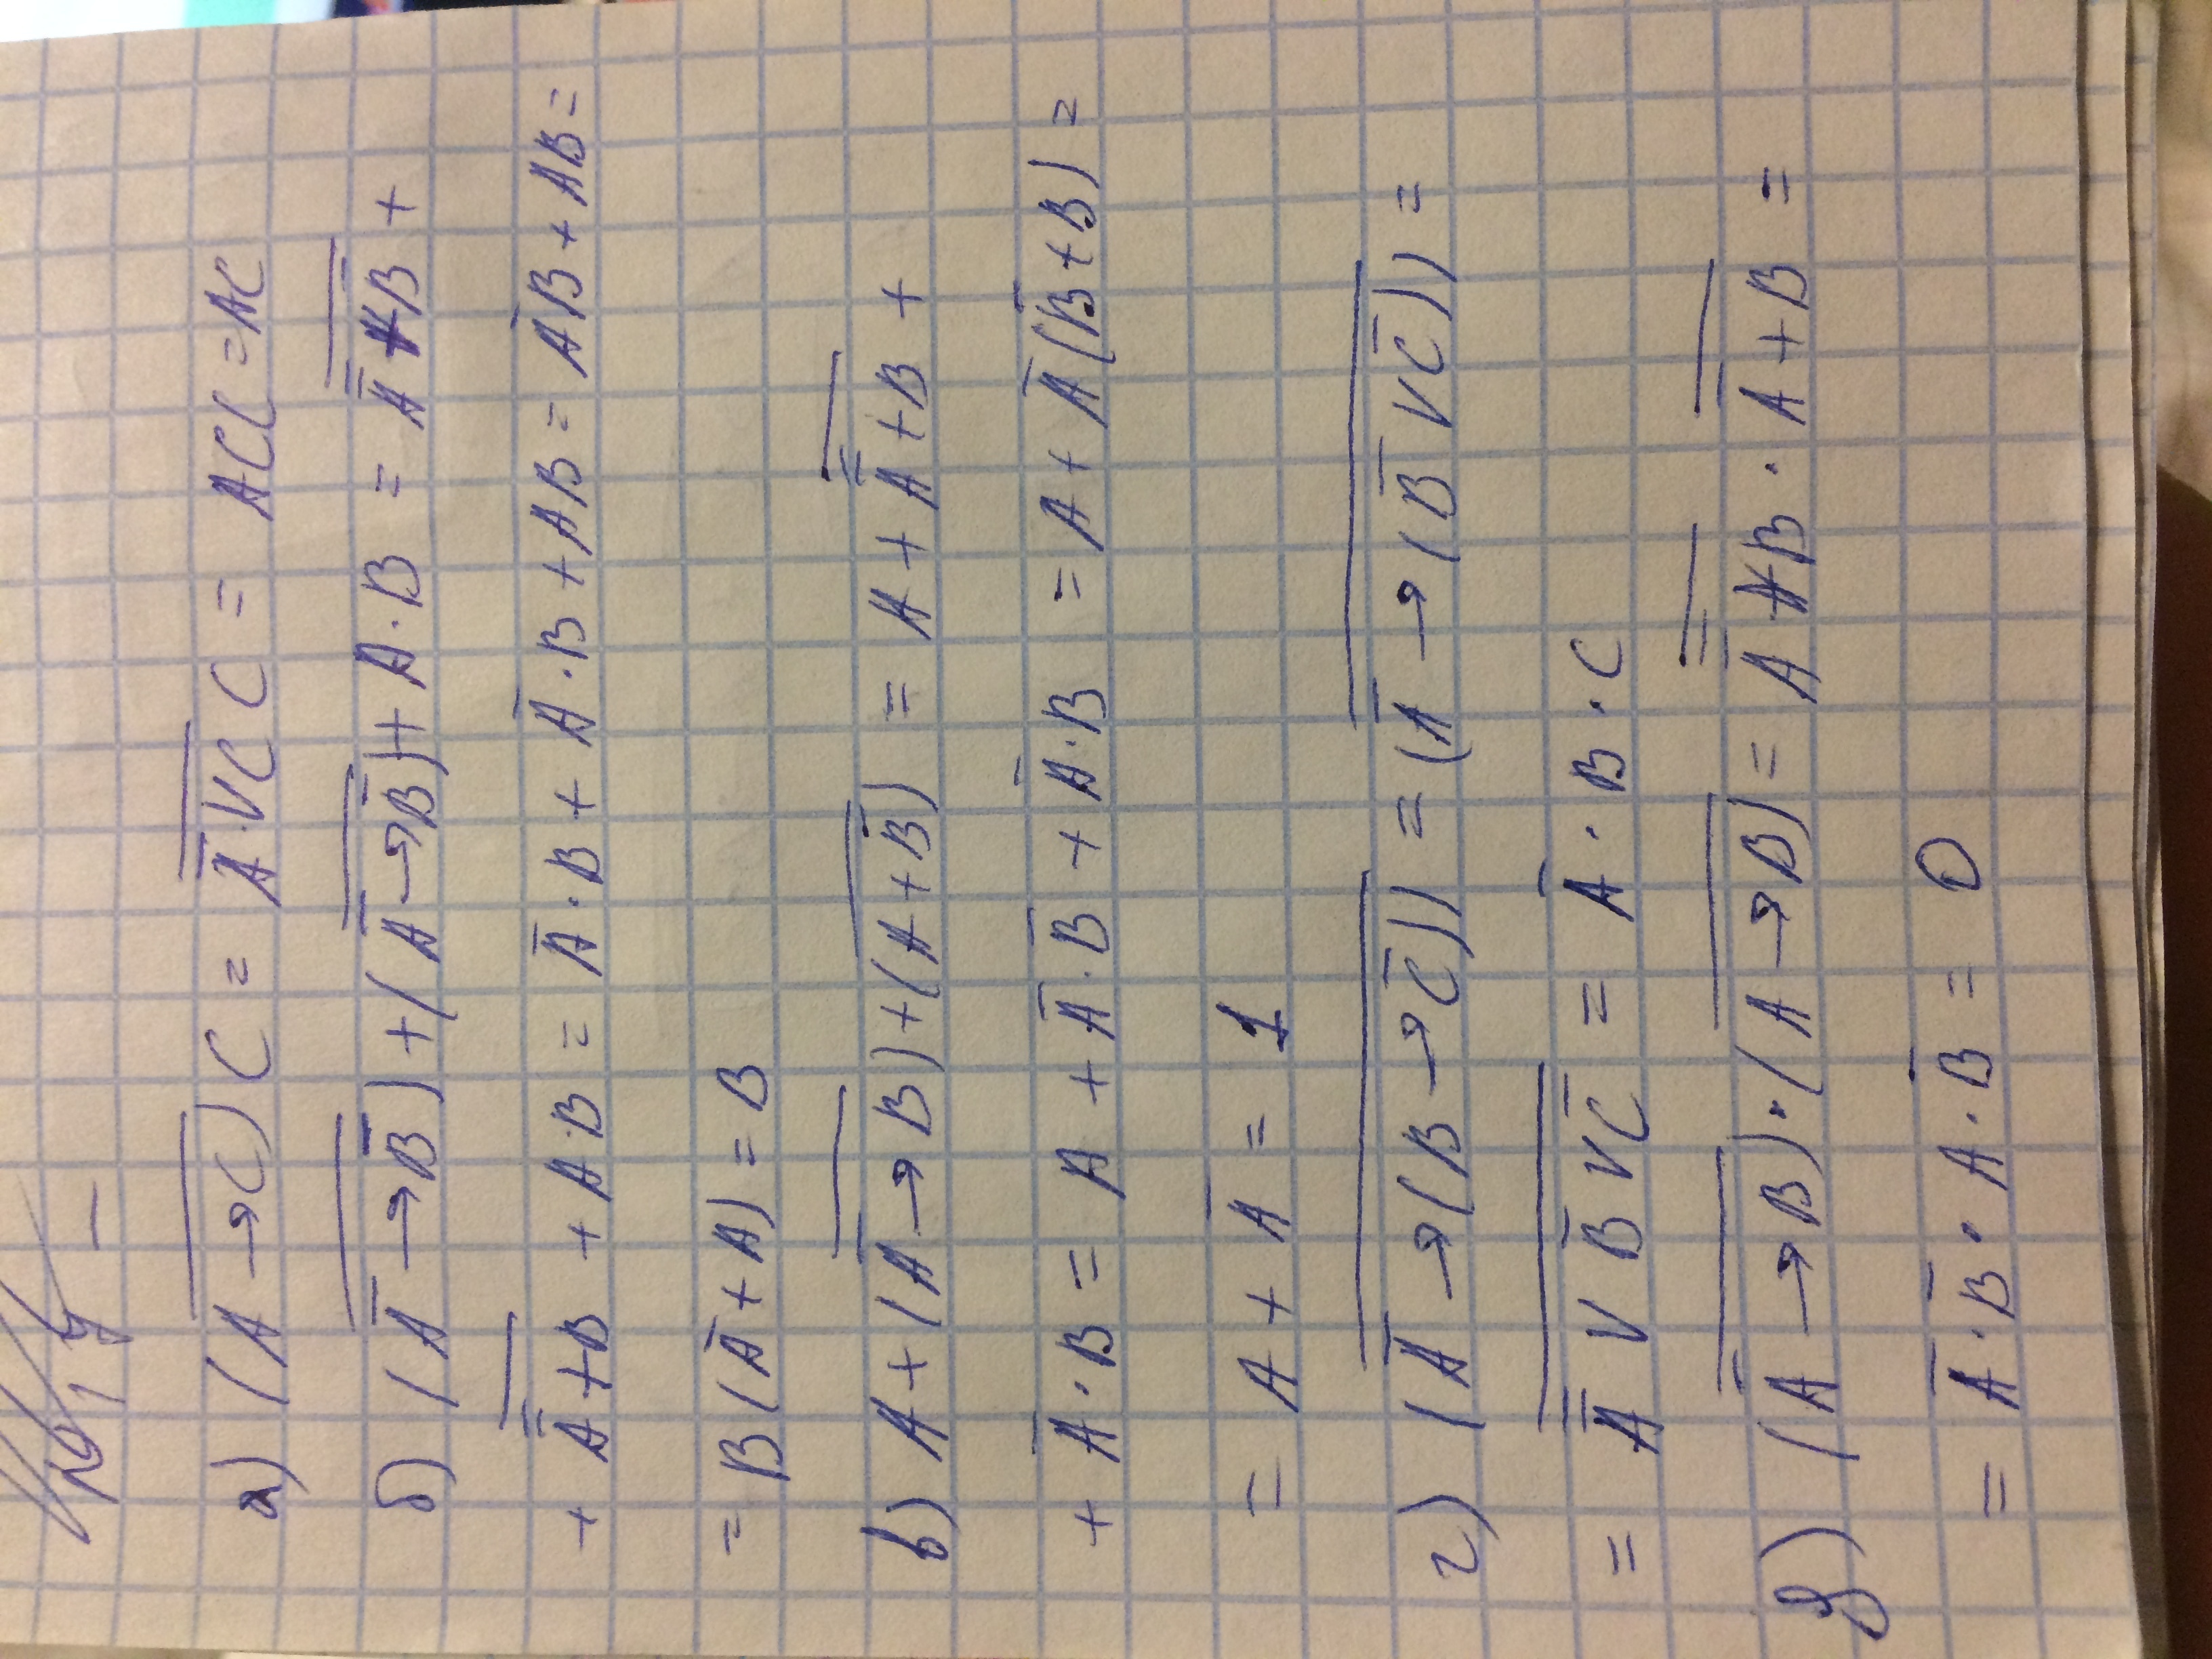 № 4
а) (A̅→C)‾ C = (A̿∨C)‾ C = ACC = AC
б) (A̅→B̅)‾ + (A̅→B̅)‾ + A·B = (A̿+B̅)‾ +
+ (A̿+B̅)‾ + A·B = A̅·B + A̅·B + AB = A̅B + AB =
= B(A̅+A) = B
в) A + (A̅→B)‾ + (A+B̅)‾ = A + (A̿+B)‾ +
+ A̅·B = A + A̅·B̅ + A̅·B = A + A̅(B̅+B) =
= A + A̅ = 1
г) (A̅→(B→C̅))‾ = (A̅→(B̅∨C̅))‾ =
= (A̿∨B̅∨C̅)‾ = A̅·B·C
д) (A̅→B)‾·(A→B)‾ = (A̿+B)‾·(A̅+B)‾ =
= A̅·B̅·A·B̅ = 0